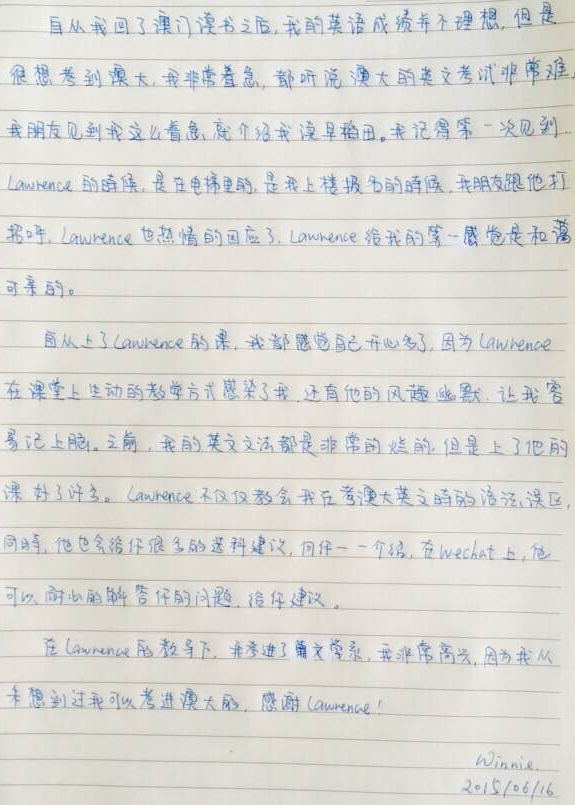 自从我回了澳门读书之后,我的英语成绩并不理想,但是
很想考到澳大,我非常着急,都听说澳大的英文考试非常难,
我朋友见到我这么着急,就介绍我读早稻田。我记得第一次见到
Lawrence 的时候,是在电梯里的,是我上楼报名的时候,我朋友跟他打
招呼,Lawrence 也热情的回应了,Lawrence 给我的第一感觉是和蔼
可亲的。
自从上了Lawrence 的课,我都感觉自己开心多了,因为Lawrence
在课堂上生动的教学方式感染了我,还有他的风趣幽默,让我容
易记上脑。之前,我的英文文法都是非常的烂的,但是上了他的
课好了许多。Lawrence 不仅仅教会我在考澳大英文时的语法,误区,
同时,他也会给你很多的选科建议,向你一一介绍,在wechat上,他
可以耐心的解答你的问题,给你建议。
在Lawrence 的教导下,我考进了葡文学系,我非常高兴,因为我从
未想到过我可以考进澳大的,感谢Lawrence!
Winnie.
2015/06/16